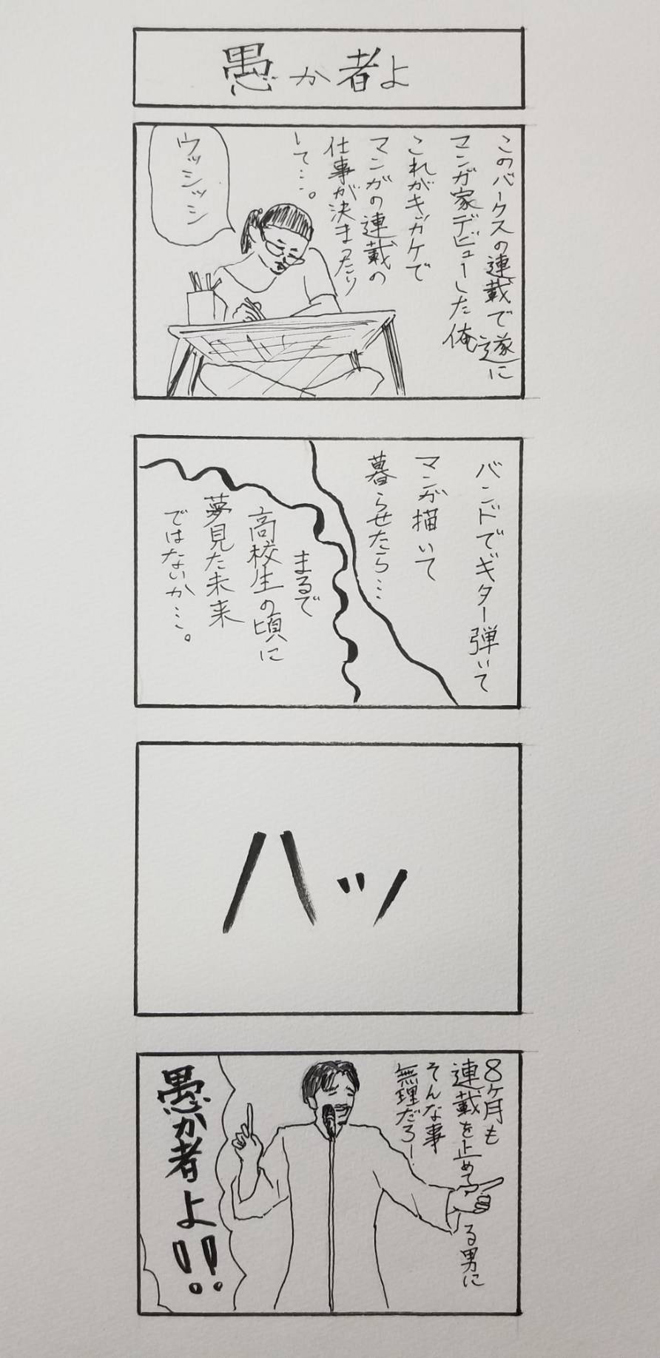 愚か者よ
このバークスの連載で遂に
マンガ家デビューした俺
これがキッカケで
マンガの連載の
仕事が決まったり
して…。
ウッシッシ
バンドでギター弾いて
マンガ描いて
暮らせたら…
まるで
高校生の頃に
夢見た未来
ではないか…。
ハッ
8ヶ月も
連載を止めてる男に
そんな事
無理だろー
愚か者よ!!